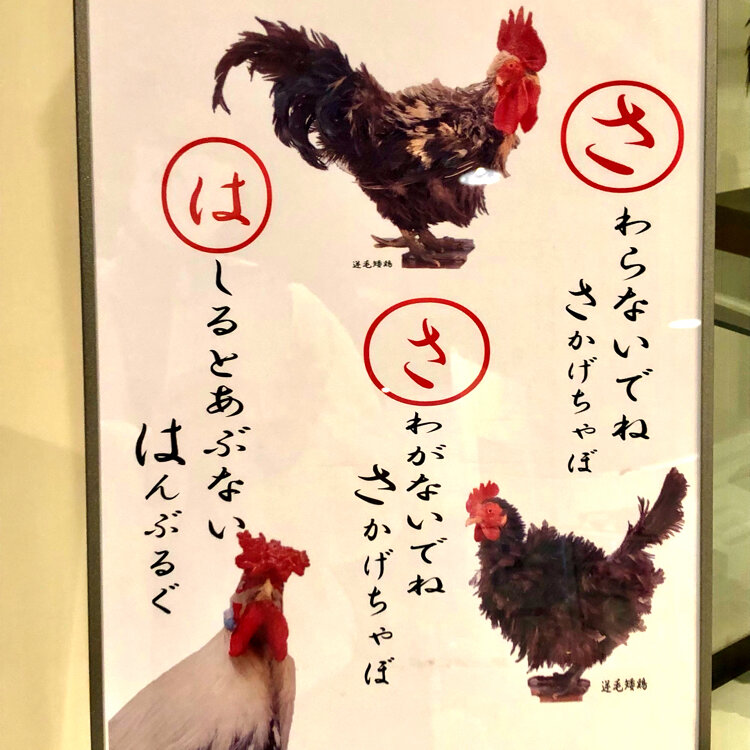 さわらないでね
さかげちゃぼ
さわがないでね
さかげちゃぼ
はしるとあぶない
はんぶるぐ
逆毛矮鶏
逆毛矮鶏